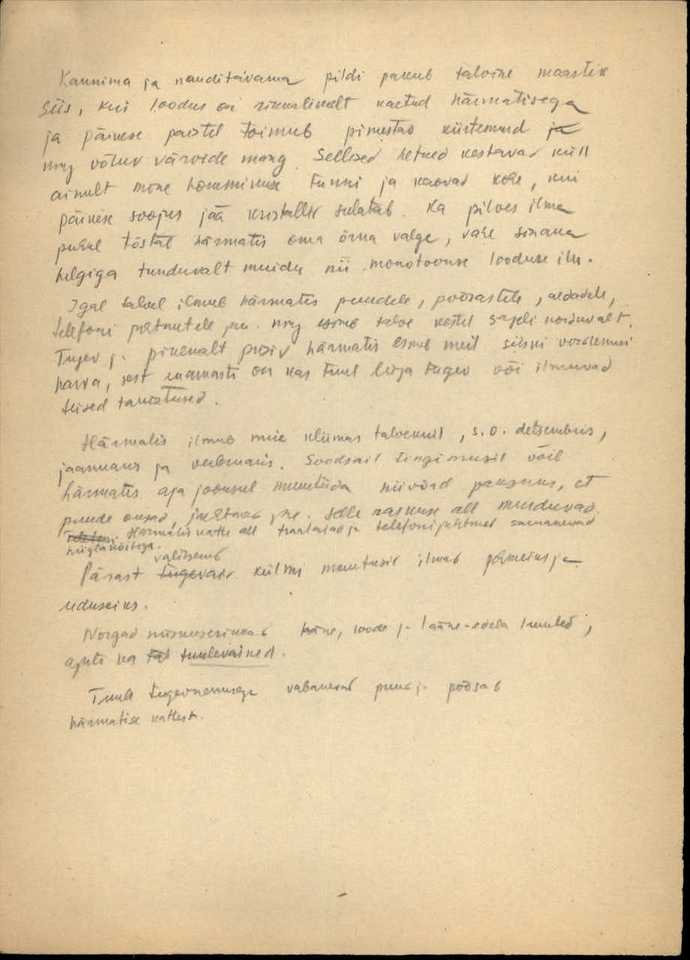 Kaunima ja nauditavama pildi pakub talvine maastik
siis, kui loodus on rikkalikult kaetud härmatisega
ja päikese paistel toimub pimestav küütemine ja
ning võluv värvide mäng. Sellised hetked kestavad küll
ainult mõne hommikuse tunni ja kaovad kohe, kui
päikese soojus jää kristallid sulatab. Ka pilves ilma
puhul tõstab härmatis oma õrna valge, vahe sinaka
helgiga tunduvalt muidu nii monotoonse looduse ilu.
Igal talvel ilmub härmatis puudele, põõsastele, aedadele,
telefoni juhtmetele jm. ning toimub talve kestel
Tugev ja pikemalt püsiv härmatis esineb meil siiski võrdlemisi
harva, sest enamasti on kas tuul liiga tugev või ilmuvad
teised takistused.
Härmatis ilmub meie kliimas talvekuil, s.o. detsembris,
jaanuaris ja veebruaris. Soodsail tingimusil võib
härmatis aja jooksul muutuda niivõrd paksuks, et
puude oksad, juhtmed jne. selle raskuse all murduvad.
Härmatise katte all traataiad ja telefonijuhtmed sarnanevad
hiiglaköitega.
valitseb
Pärast tugevaid külmi muutusid ilmad pehmeiks ja
uduseiks.
Nõrgad lääne, loode ja lääne-edela tuuled,
ajuti ka tuulevaiked.
Tuule tugevnemisega vabanevad puud ja põõsad
härmatise kattest.